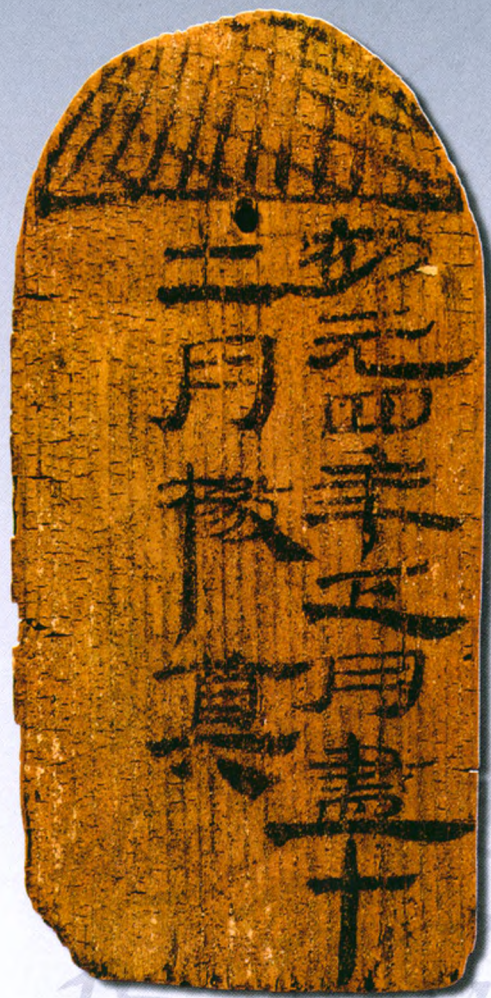 初元四年正月盡十
二月